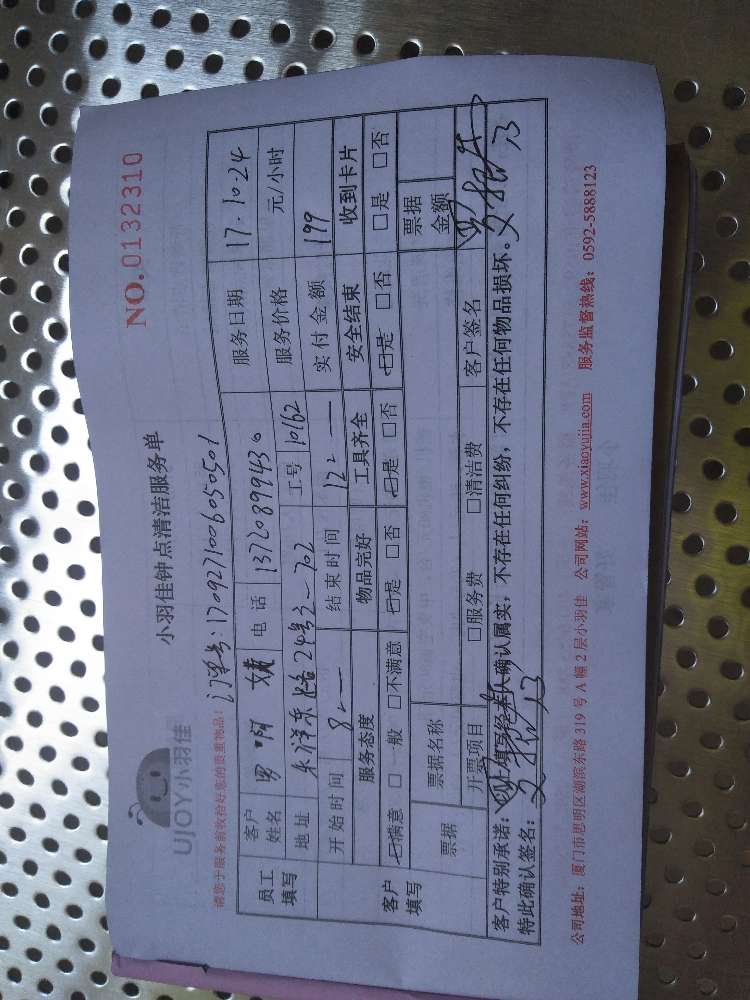 UJOY小羽佳
小羽佳钟点清洁服务单
NO.0132310
请您于服务前收拾好您的贵重物品！
订单号：1709271006050501
员工填写
客户姓名
电话 13720899430
服务日期 17.10.24
地址
24号2-702
工号 10162
服务价格 元/小时
开始时间 8:—
结束时间 12:—
实付金额 199
客户填写
服务态度 物品完好 工具齐全 安全结束 收到卡片
☑满意 □一般 □不满意 ☑是 □否 ☑是 □否 ☑是 □否 □是 □否
票据 票据名称 票据金额
开票项目 □服务费 □清洁费 客户签名
客户特别承诺：以上填写经本人确认属实，不存在任何纠纷，不存在任何物品损坏。
特此确认签名：
公司地址：厦门市思明区湖滨东路 319 号 A 幢 2 层小羽佳 公司网站：www.xiaoyujia.com 服务监督热线：0592-5888123